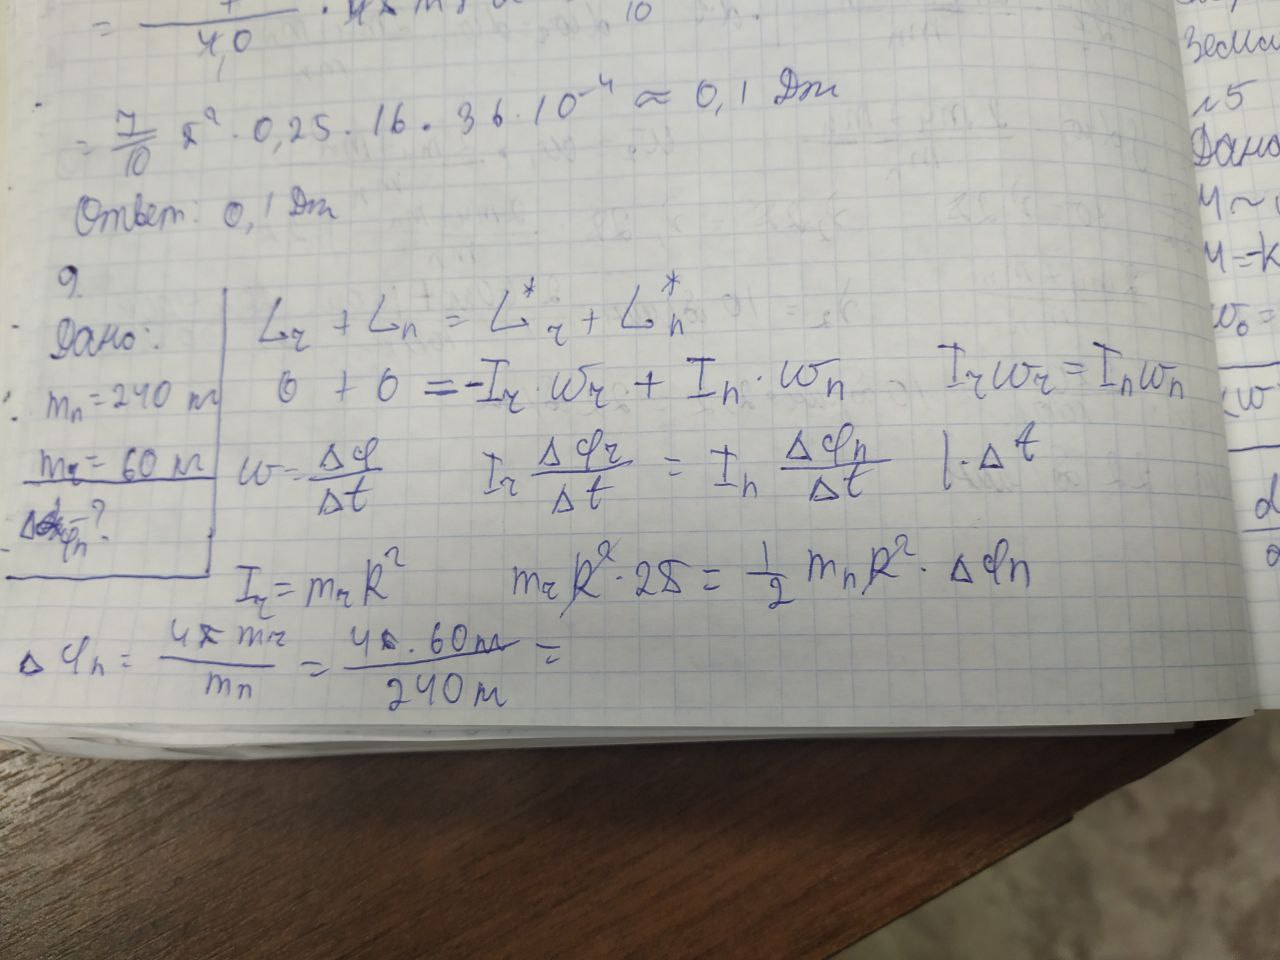 = 7/10 π² · 0,25 · 16 · 36 · 10⁻⁴ ≈ 0,1 Дж
Ответ: 0,1 Дж
9.
Дано:
mп = 240 кг
mч = 60 кг
Δφп - ?
Lч + Lп = L*ч + L*п
0 + 0 = -Iч · ωч + Iп · ωп Iчωч = Iпωп
ω = Δφ/Δt Iч Δφч/Δt = Iп Δφп/Δt | · Δt
Iч = mчR² mчR² · 2π = 1/2 mпR² · Δφп
Δφп = 4πmч/mп = 4π · 60кг/240кг =
№5
Дано
M ~
M = -k
ω₀ =